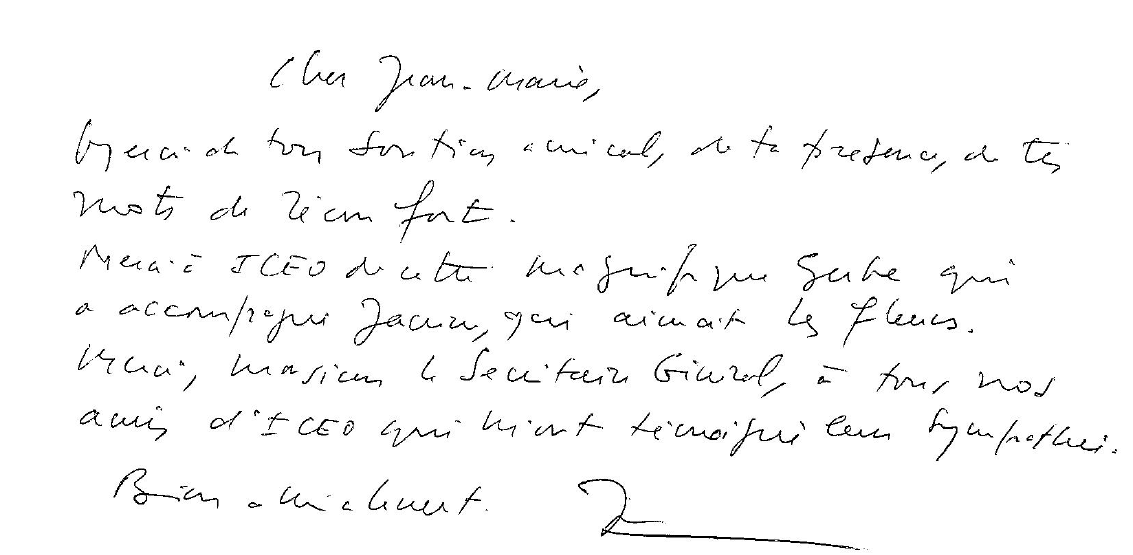 Cher Jean-Marie,
Merci de ton soutien amical, de ta présence, de tes
mots de réconfort.
Merci à ICEO de cette magnifique gerbe qui
a accompagné, qui aimait les fleurs.
Merci, Monsieur le Secrétaire Général, à tous nos
amis d'ICEO qui m'ont témoigné leur sympathie.
Bien amicalement.